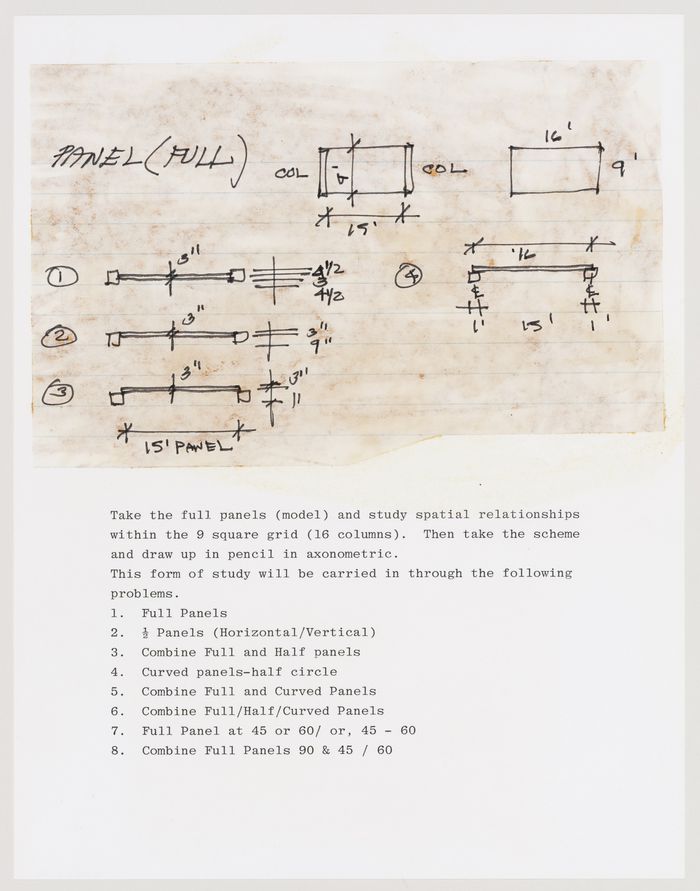 PANEL (FULL)
COL
9'
COL
15'
16'
9'
1
3"
4 1/2
3
4 1/2
2
3"
3"
9"
3
3"
3"
15' PANEL
4
16'
℄
℄
1'
15'
1'
Take the full panels (model) and study spatial relationships
within the 9 square grid (16 columns).  Then take the scheme
and draw up in pencil in axonometric.
This form of study will be carried in through the following
problems.
1.  Full Panels
2.  ½ Panels (Horizontal/Vertical)
3.  Combine Full and Half panels
4.  Curved panels-half circle
5.  Combine Full and Curved Panels
6.  Combine Full/Half/Curved Panels
7.  Full Panel at 45 or 60/ or, 45 - 60
8.  Combine Full Panels 90 & 45 / 60